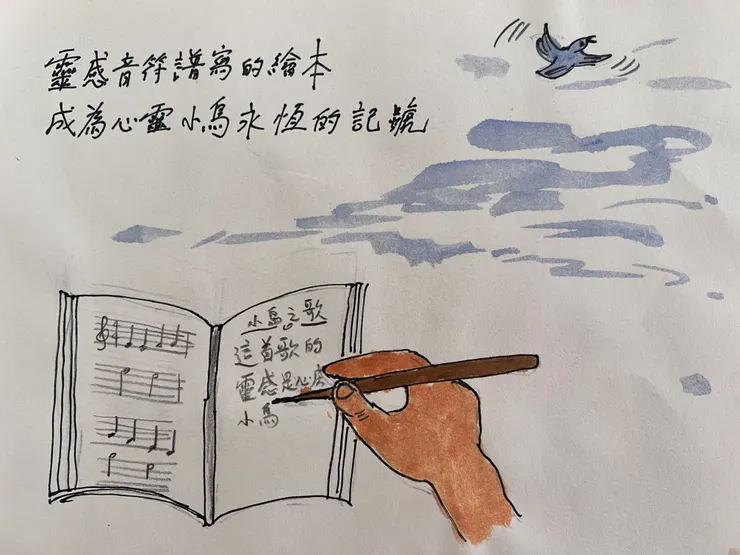 靈感音符譜寫的繪本
成為心靈小鳥永恆的記號
小鳥之歌
這首歌的
靈感是心
小鳥